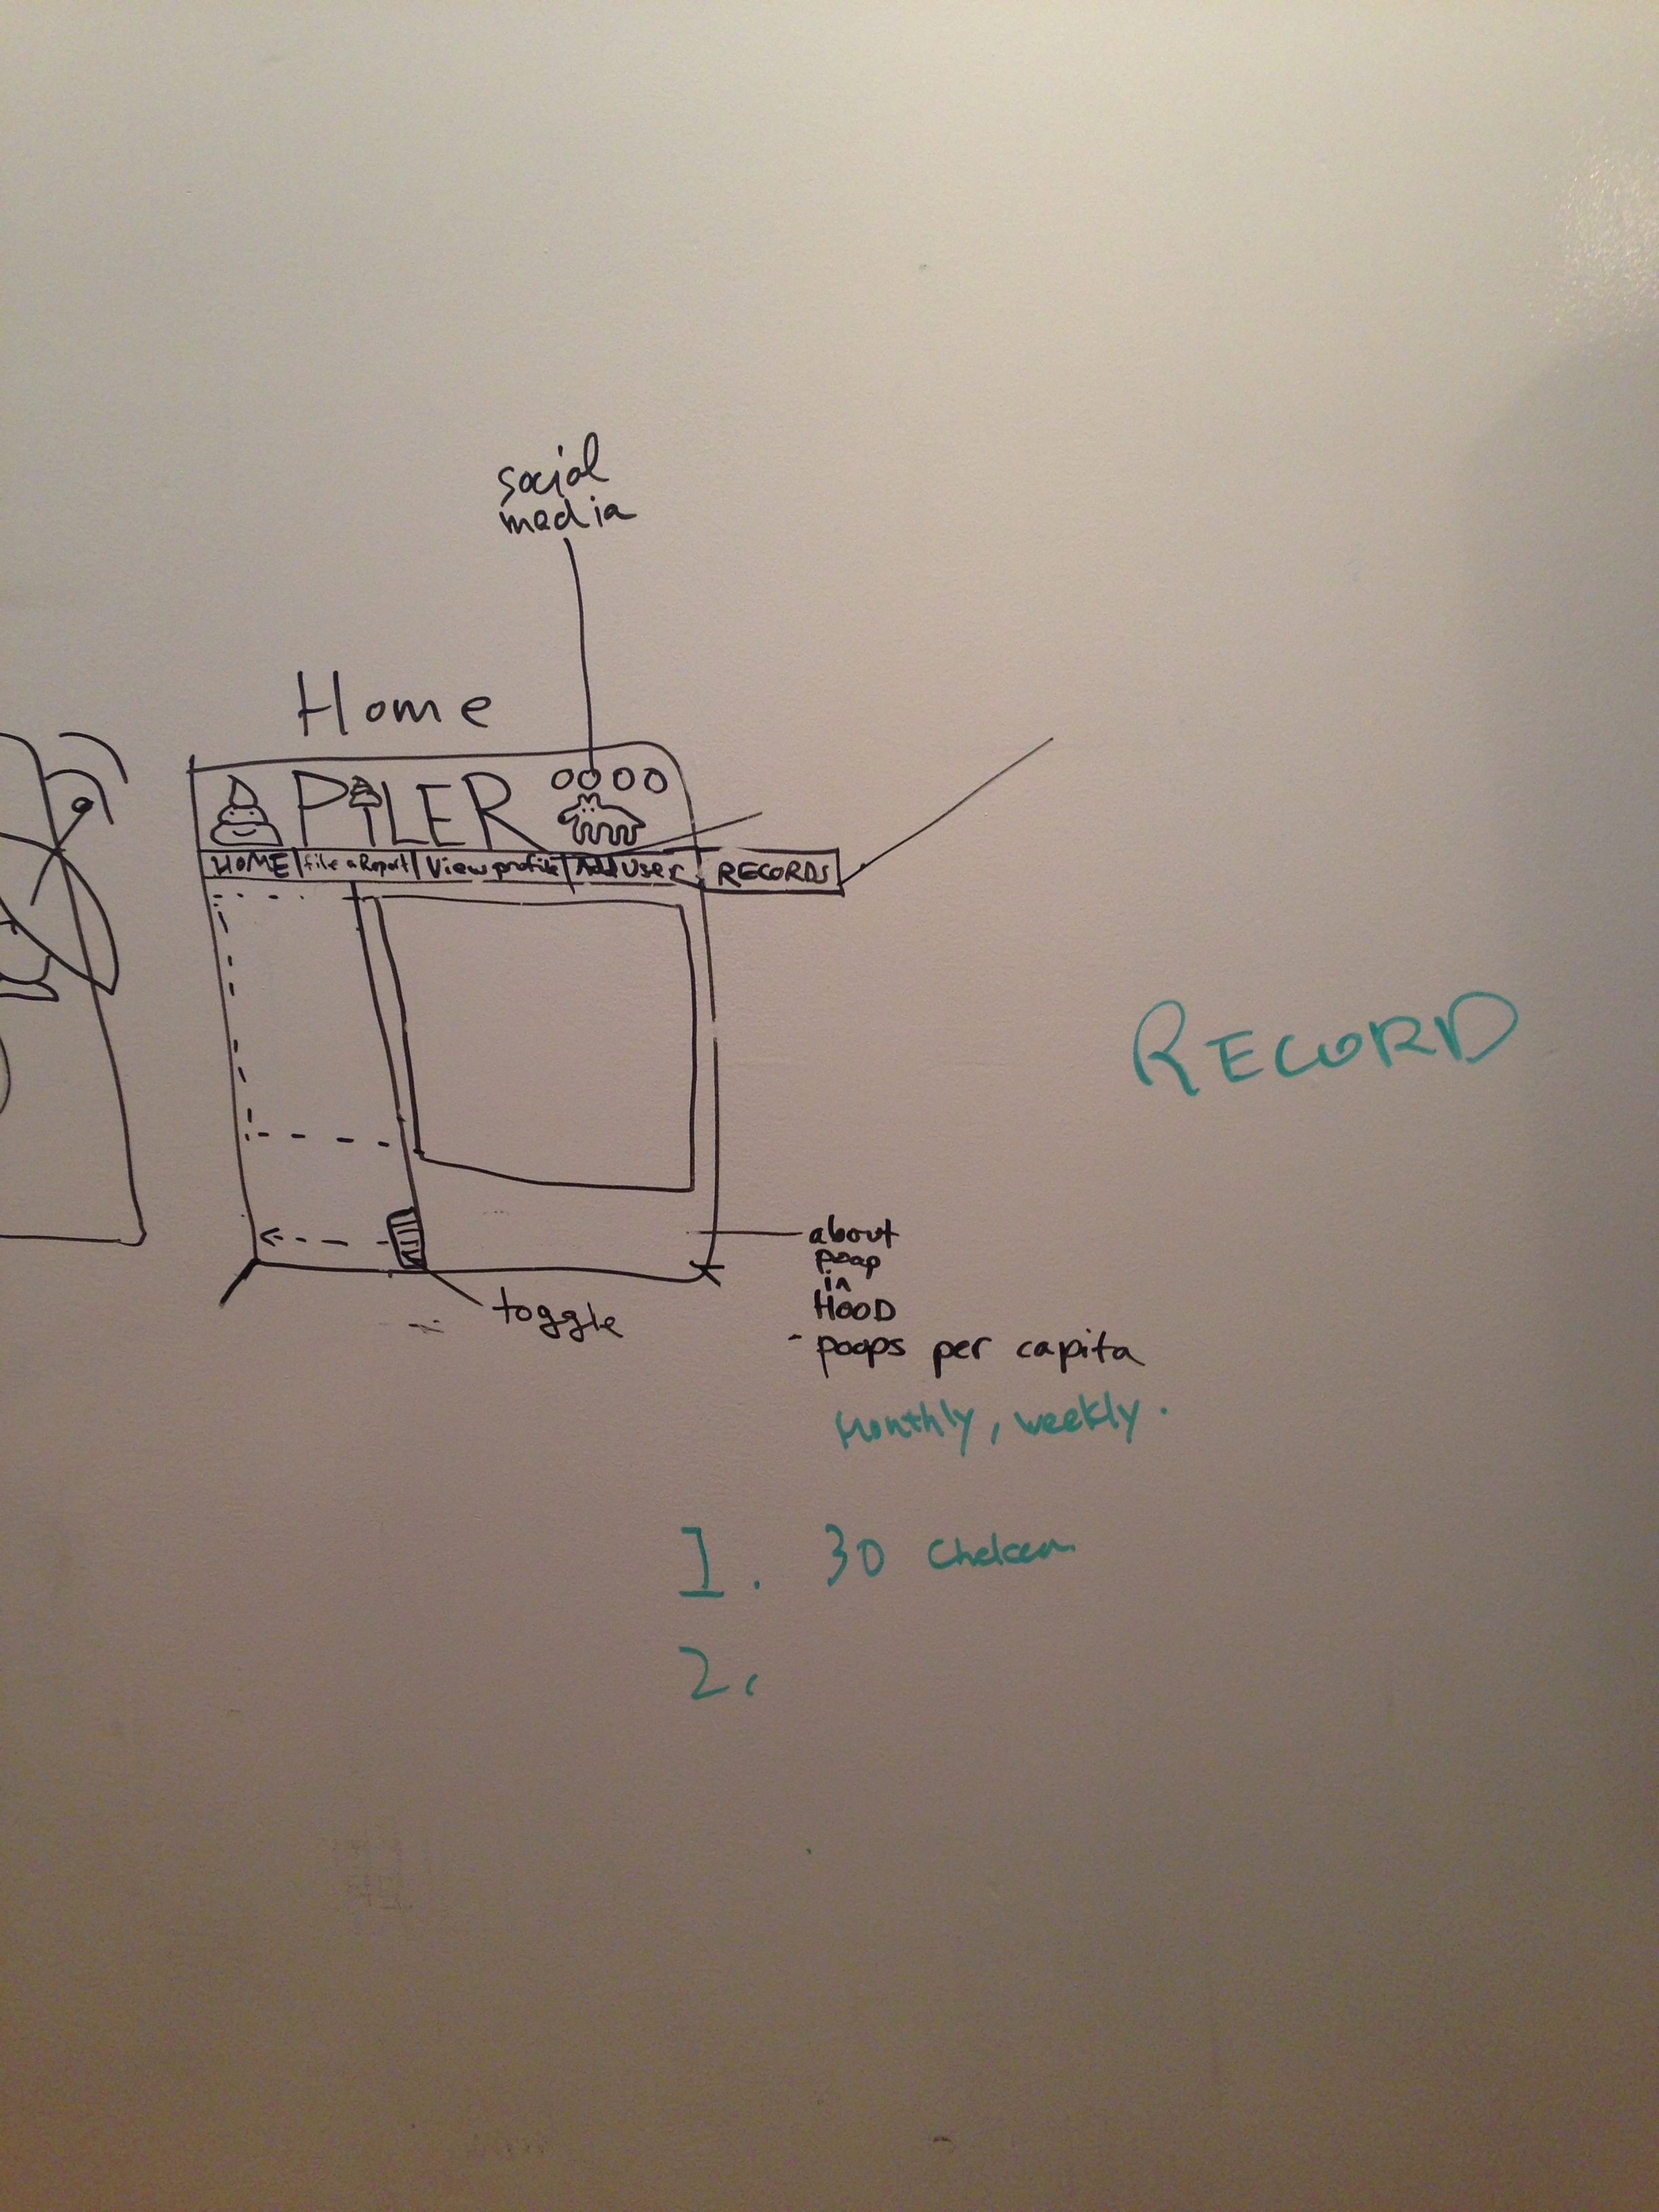 social
media
Home
PILER
HOME | File a Report | View profile | Add User | RECORDS
RECORD
toggle
about
poop
in
HOOD
- poops per capita
Monthly, weekly.
1. 30
2.